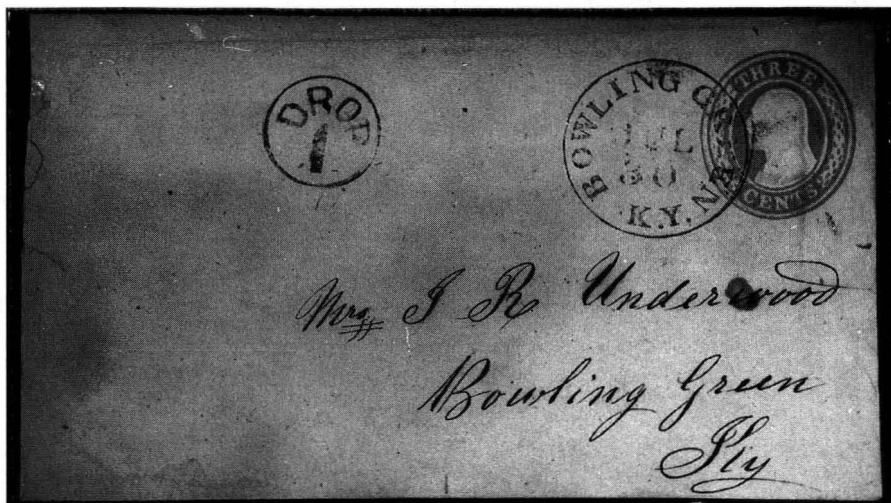 DROP
1
BOWLING GREEN
JUL
30
K.Y.
THREE
CENTS
Mrs J R Underwood
Bowling Green
Ky